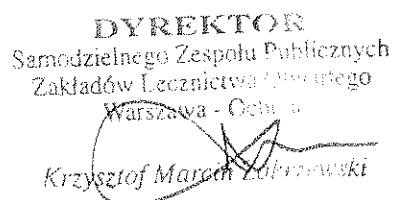 DYREKTOR
Samodzielnego Zespołu Publicznych
Zakładów Lecznictwa Otwartego
Warszawa - Ochota
Krzysztof Marcin